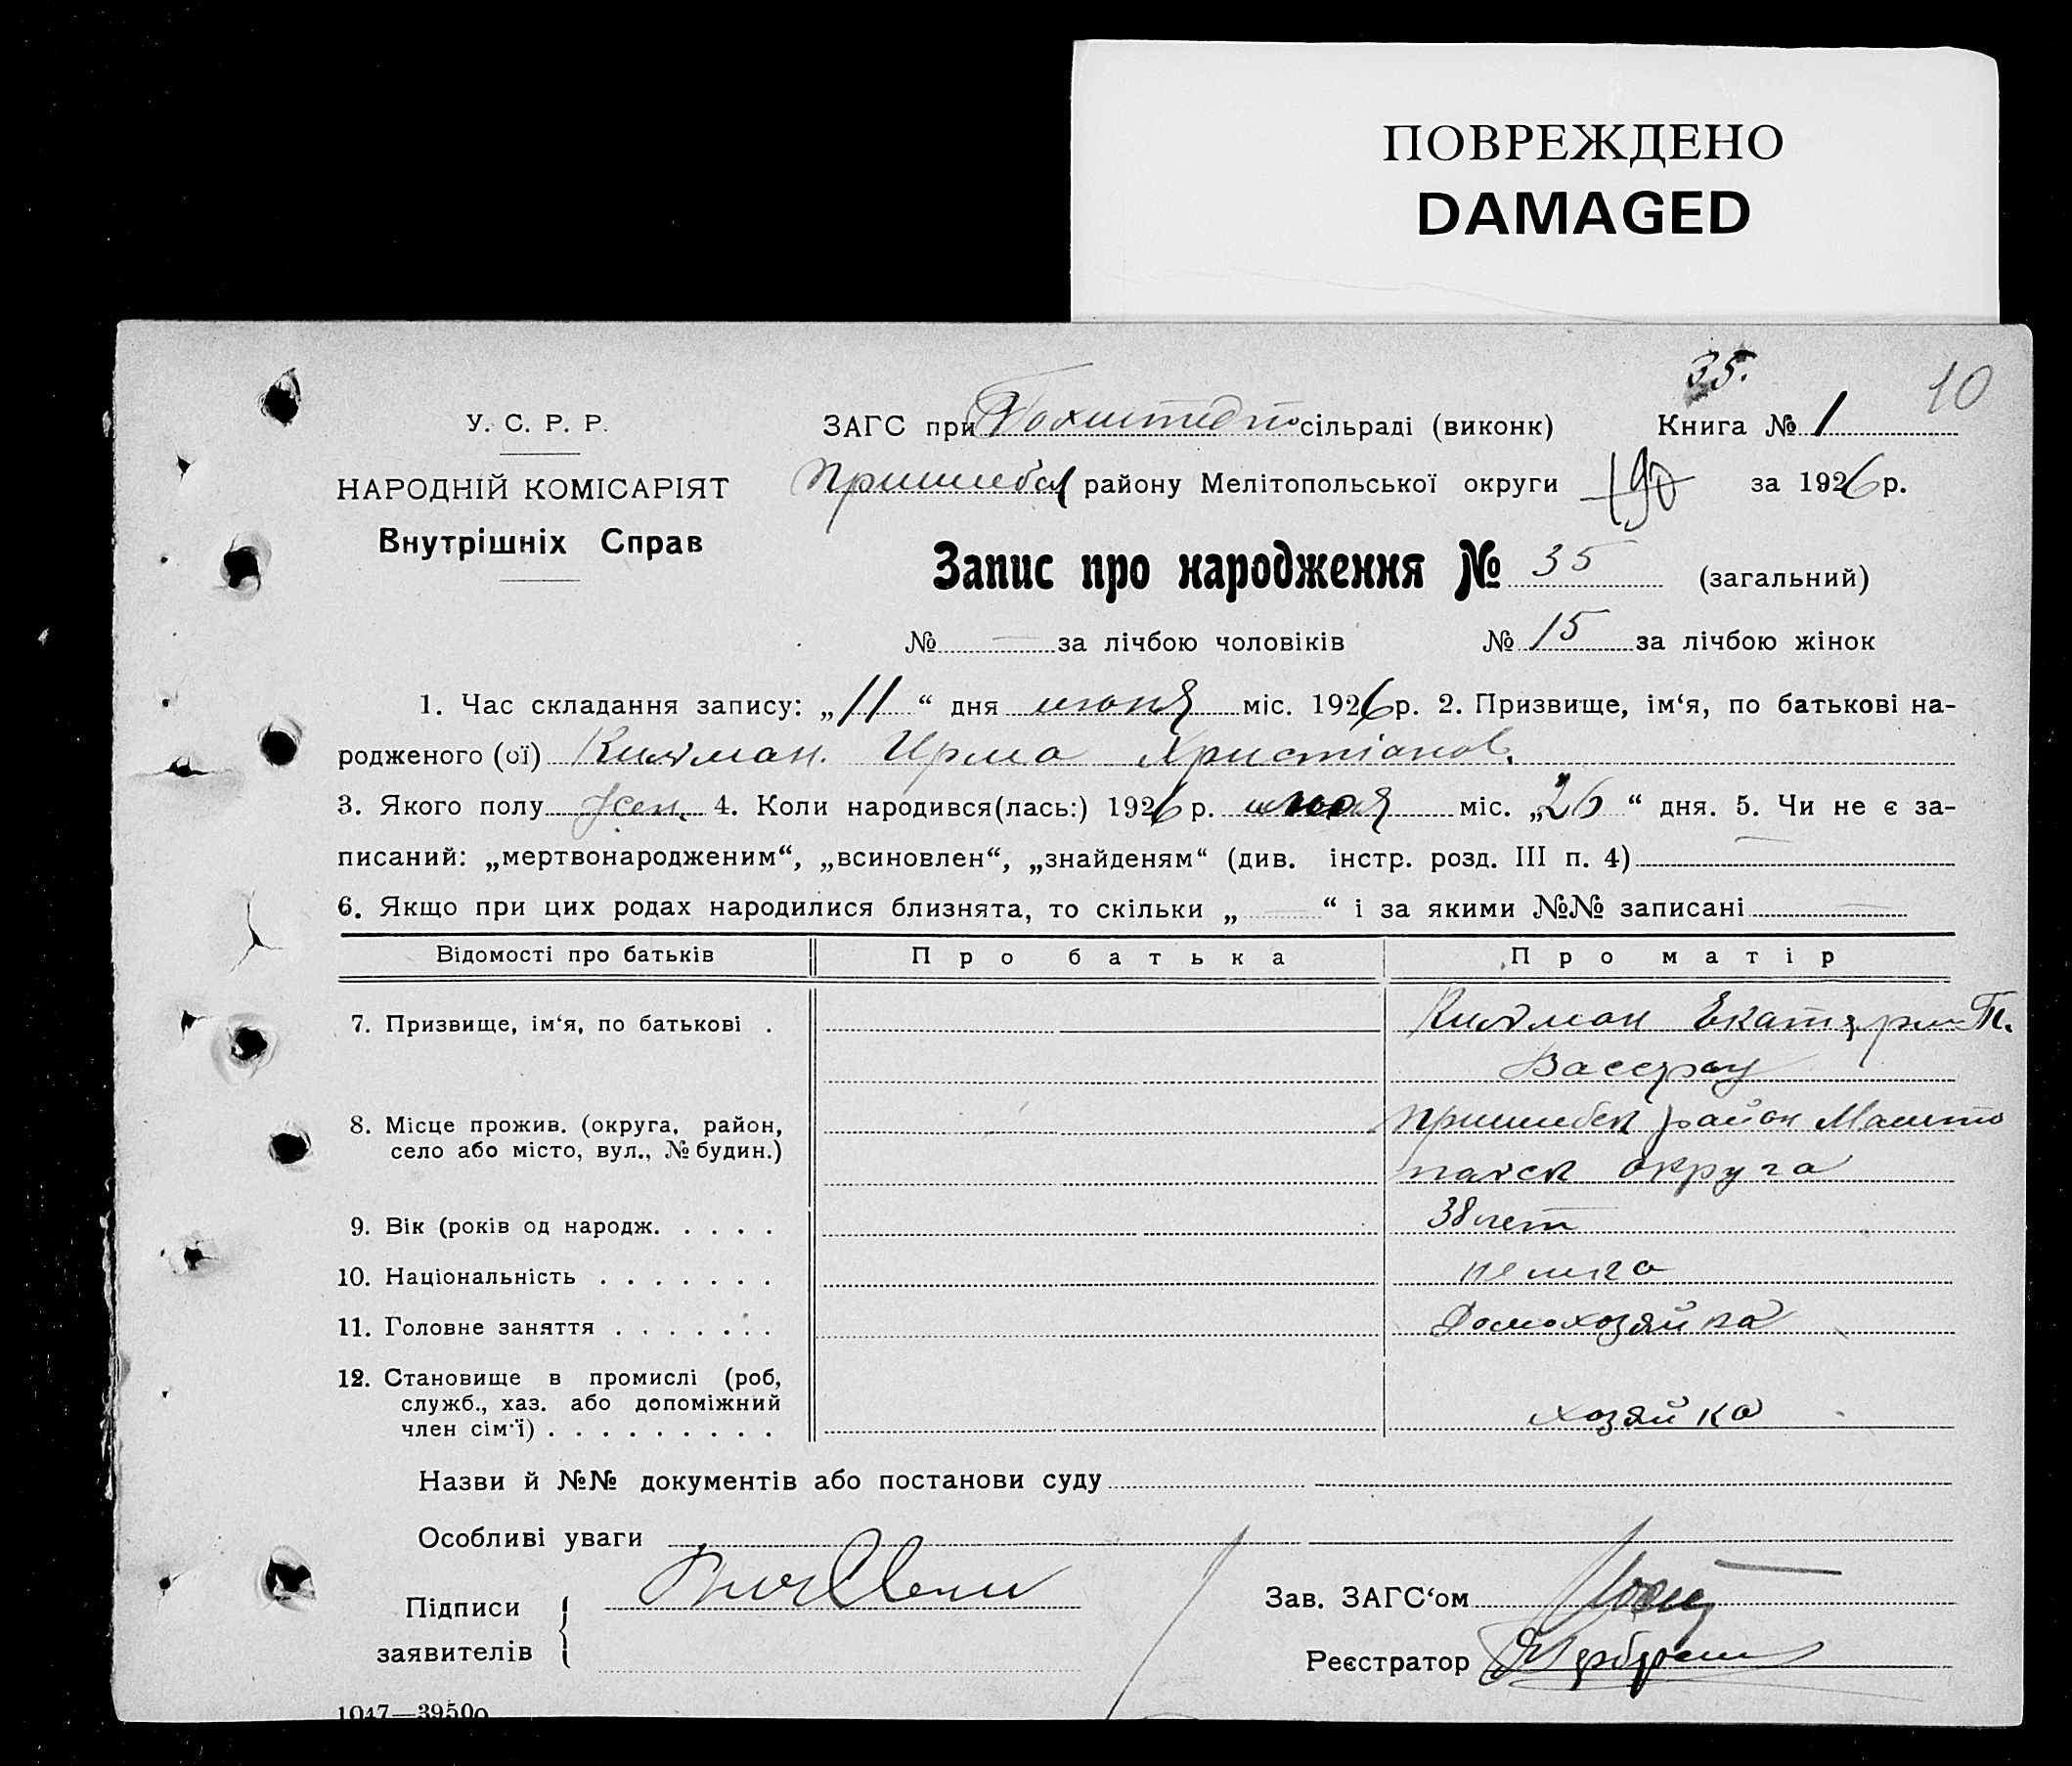 ПОВРЕЖДЕНО
DAMAGED
35.
10
У. С. Р. Р.
НАРОДНІЙ КОМІСАРІЯТ
Внутрішніх Справ
ЗАГС при сільраді (виконк) Книга № 1
району Мелітопольської округи 190 за 1926 р.
Запис про народження № 35 (загальний)
№ — за лічбою чоловіків № 15 за лічбою жінок
1. Час складання запису: „11“ дня июня міс. 1926 р. 2. Призвище, ім‘я, по батькові на-
родженого (ої) Килман. Ирма Христіанов.
3. Якого полу жен. 4. Коли народився(лась:) 1926 р. міс. „26“ дня. 5. Чи не є за-
писаний: „мертвонародженим“, „всиновлен“, „знайденям“ (див. інстр. розд. III п. 4) —
6. Якщо при цих родах народилися близнята, то скільки „ — “ і за якими №№ записані —
Відомості про батьків Про батька Про матір
7. Призвище, ім‘я, по батькові . Килман
Вассрау
8. Місце прожив. (округа, район, Пришибск район
село або місто, вул., № будин.) округа
9. Вік (років од народж. . . . . 38 лет
10. Національність . . . . . . . немка
11. Головне заняття . . . . . . . Домохозяйка
12. Становище в промислі (роб,
служб., хаз. або допоміжний хозяйка
член сім‘ї) . . . . . . . . .
Назви й №№ документів або постанови суду
Особливі уваги
Підписи
заявителів
Зав. ЗАГС‘ом
Реєстратор
1047—39500